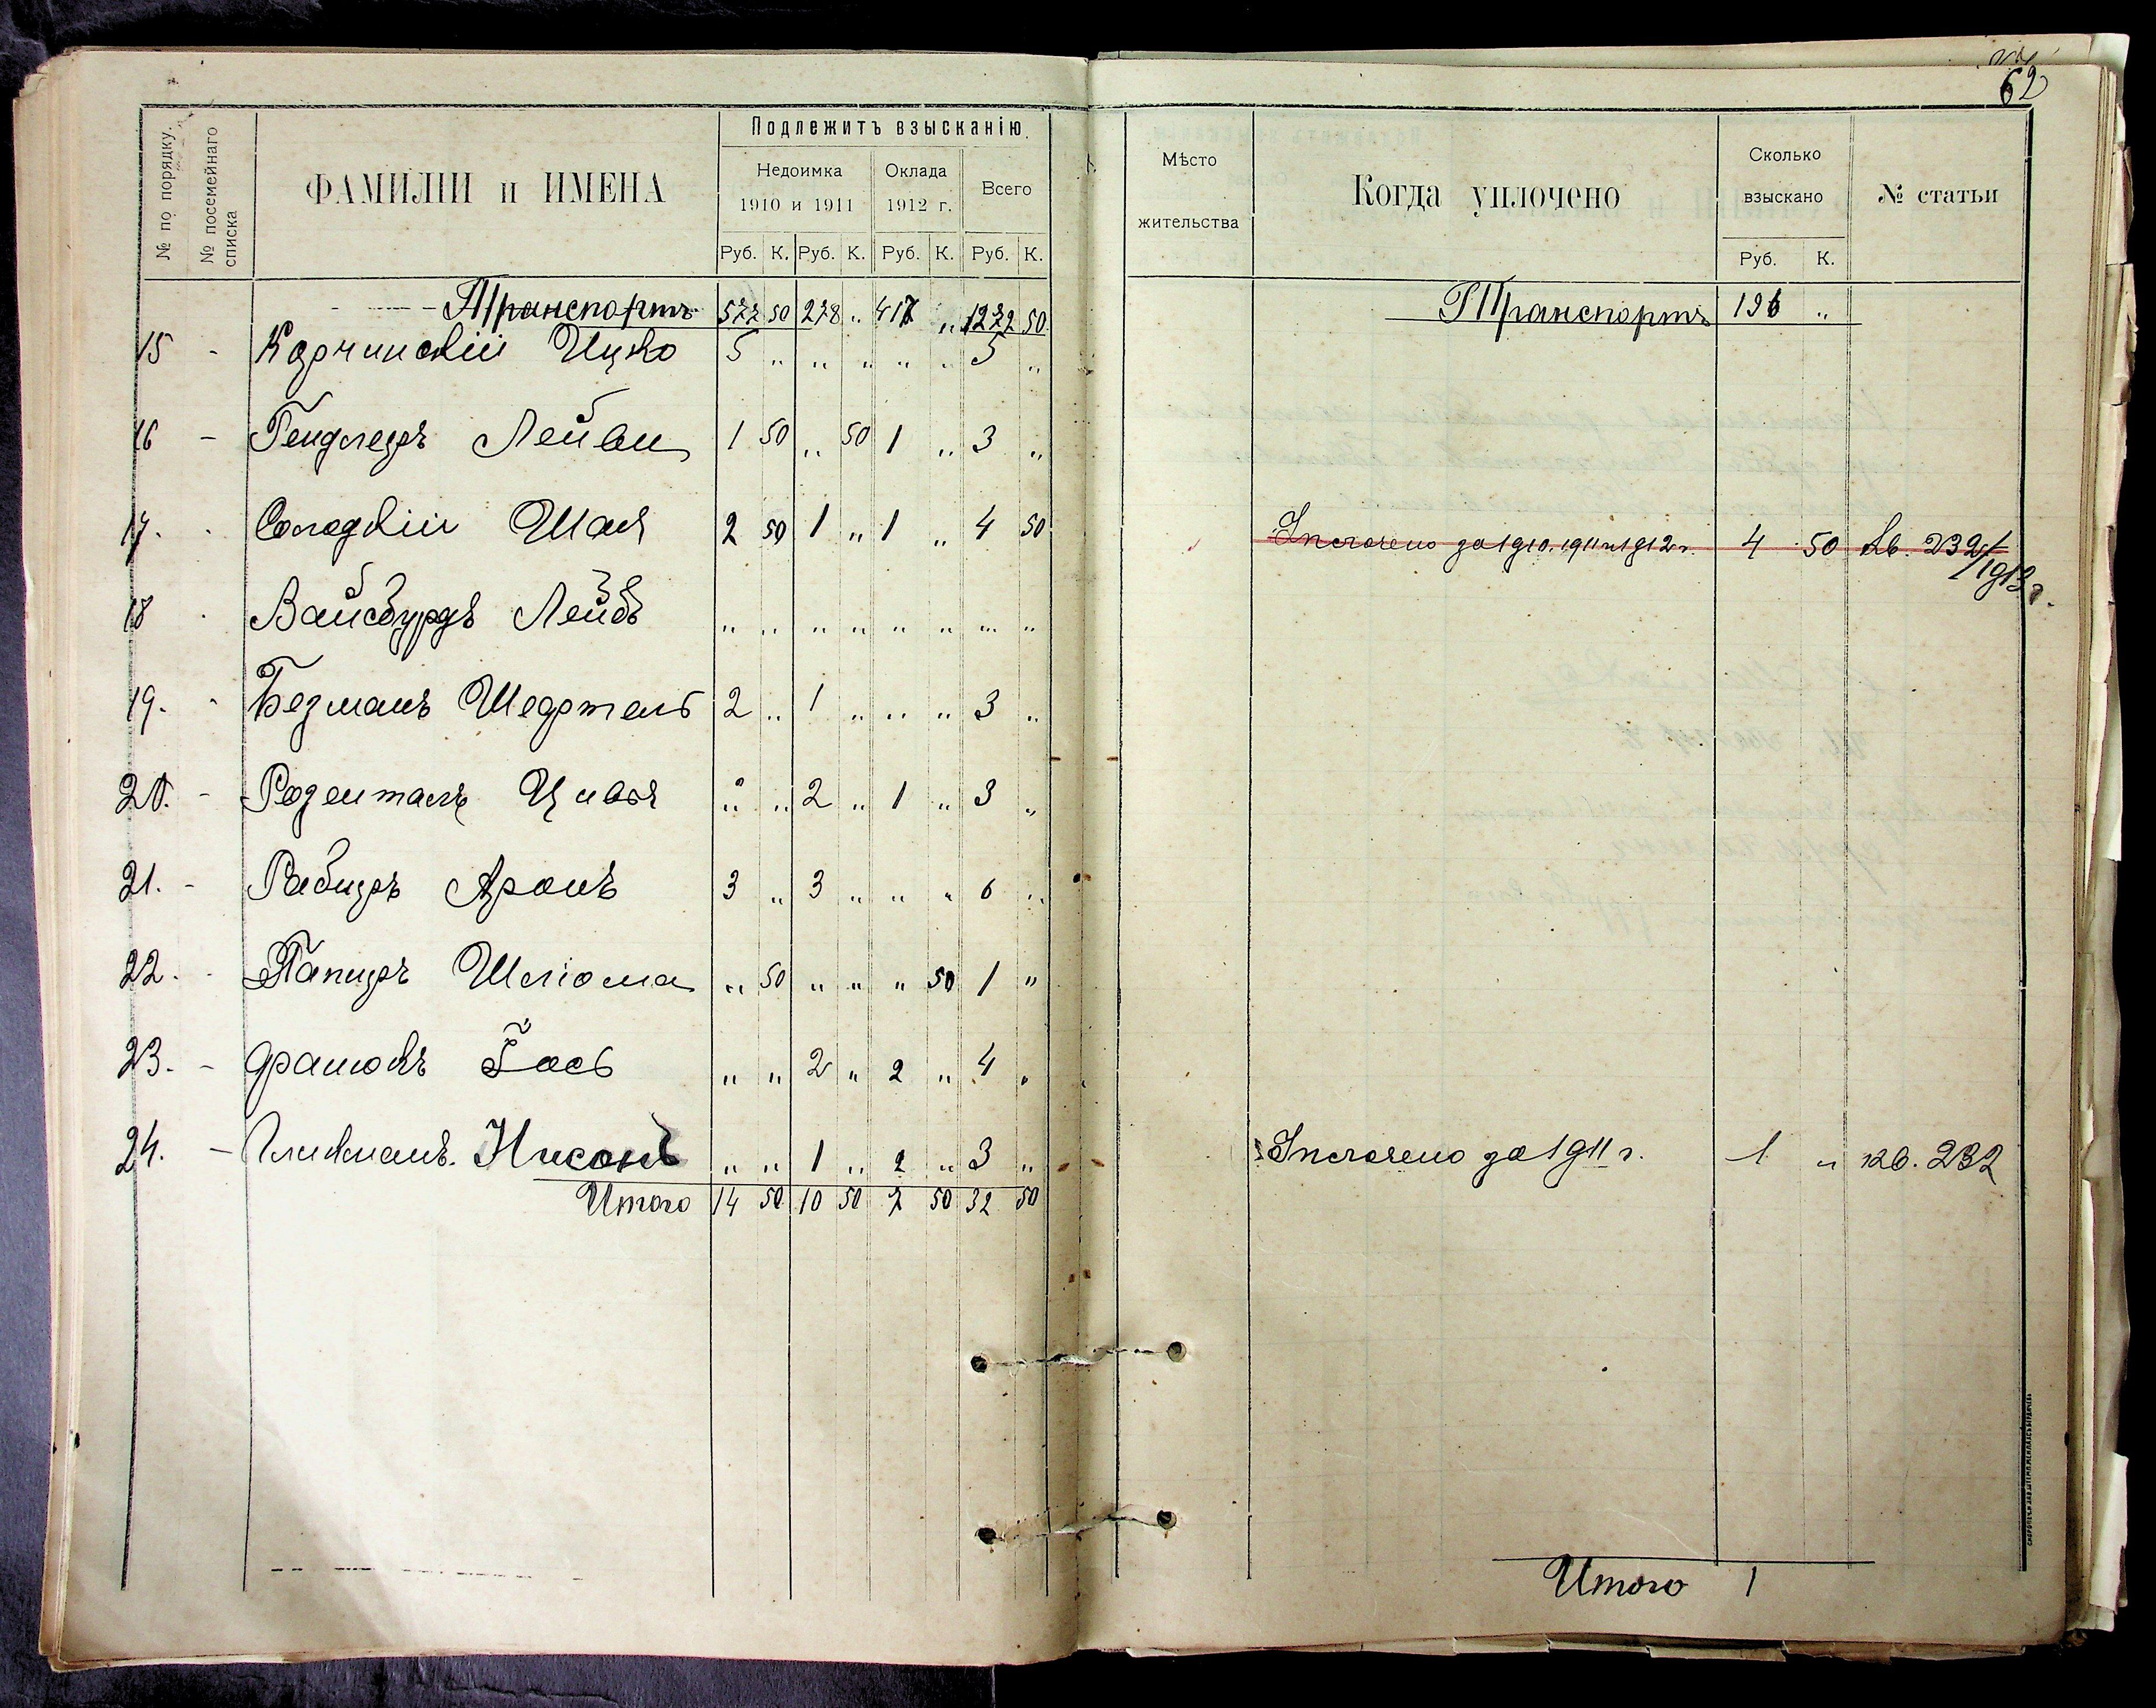 62
№ по порядку.
№ посемейнаго списка
ФАМИЛІИ и ИМЕНА
Подлежитъ взысканію.
Недоимка
1910 и 1911
Оклада
1912 г.
Всего
Руб. К. Руб. К. Руб. К. Руб. К.
Мѣсто
жительства
Когда уплочено
Сколько
взыскано
Руб. К.
№ статьи
Транспортъ 577 50 278 „ 417 „ 1272 50 Транспортъ 196 „
15 - Корчинскій Ицко 5 „ „ „ „ „ 5 „
16 - Гендлеръ Лейви 1 50 „ 50 1 „ 3 „
17. Солодкій Шая 2 50 1 „ 1 „ 4 50 за 1910. 1911 и 1912 г. 4 50 Кв. 232/1913 г.
18 Вайсбурдъ Лейбъ „ „ „ „ „ „ „ „
19. - Безманъ Шефтель 2 „ 1 „ „ „ 3 „
20. - Розенталь Цивья „ „ 2 „ 1 „ 3 „
21. - Рабинъ Аронъ 3 „ 3 „ „ „ 6 „
22. Папиръ Шліома „ 50 „ „ „ 50 1 „
23. - Фратовъ Іось „ „ 2 „ 2 „ 4 „
24. - Гликманъ. Нисонъ „ „ 1 „ 2 „ 3 „ за 1911 г. 1 „ кв. 232
Итого 14 50 10 50 7 50 32 50
Итого 1